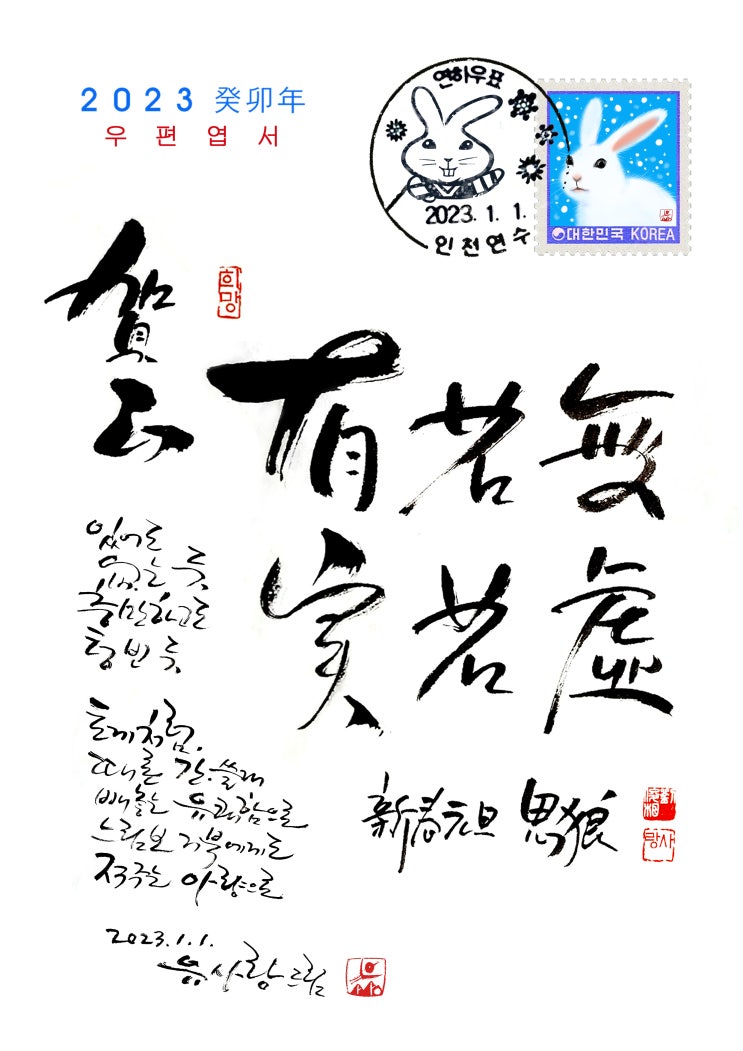 2023 癸卯年
우편엽서
연하우표
2023. 1. 1.
인천연수
대한민국 KOREA
賀正
희망
有若無
実若虛
있어도
없는 듯
충만하고도
텅 빈 듯
토끼처럼,
때론 간.쓸개
빼놓는 유쾌함으로
느림보 거북에게도
져주는 아량으로
新春元旦 思狼
2023.1.1.
유사랑드림